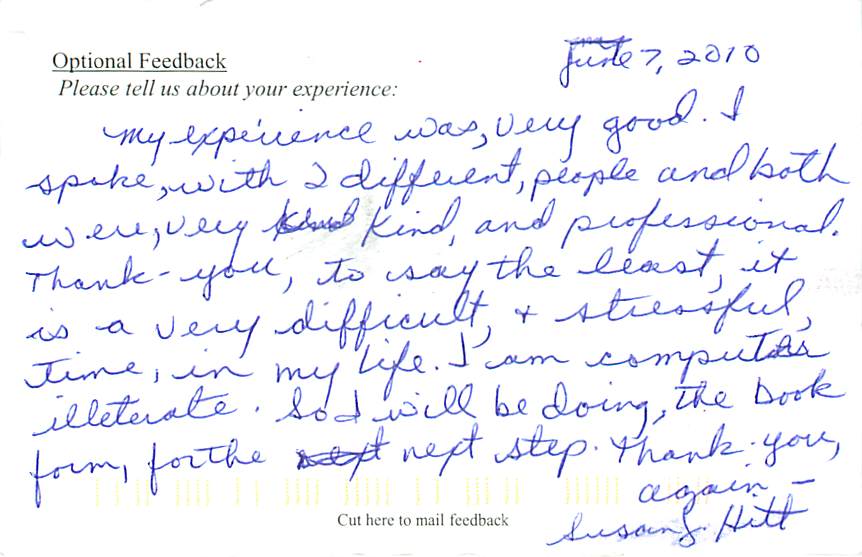 June 7, 2010
Optional Feedback
Please tell us about your experience:
My experience was, very good. I
spoke, with 2 different, people and both
were, very kind Kind, and professional.
Thank-you, to say the least, it
is a very difficult, & stressful,
time, in my life. I am computer
illeterate. So I will be doing, the book
form, for the next next step. Thank-you,
again -
Susan J. Hitt
Cut here to mail feedback